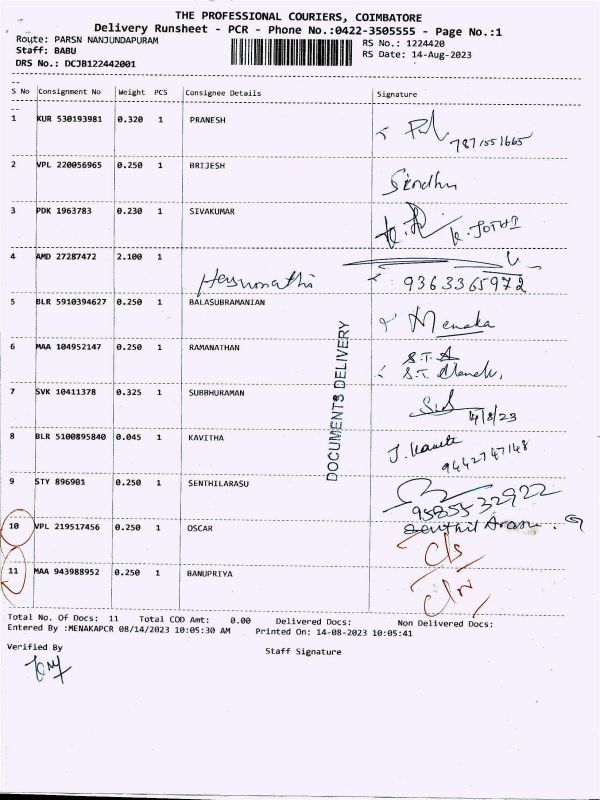 THE PROFESSIONAL COURIERS, COIMBATORE
Delivery Runsheet - PCR - Phone No.:0422-3505555 - Page No.:1
Route: PARSN NANJUNDAPURAM
RS No.: 1224420
Staff: BABU
RS Date: 14-Aug-2023
DRS No.: DCJB122442001
S No Consignment No Weight PCS Consignee Details Signature
1 KUR 530193981 0.320 1 PRANESH
7871551665
2 VPL 220056965 0.250 1 BRIJESH
Sindhu
3 PDK 1963783 0.230 1 SIVAKUMAR
K. JOTHI
4 AMD 27287472 2.100 1
9363365972
5 BLR 5910394627 0.250 1 BALASUBRAMANIAN
Menaka
6 MAA 104952147 0.250 1 RAMANATHAN
S.T.A
S.T.
7 SVK 10411378 0.325 1 SUBBHURAMAN
14/8/23
8 BLR 5100895840 0.045 1 KAVITHA
J.
9442747148
9 STY 896901 0.250 1 SENTHILARASU
9585532922
Senthil Arasu . G
10 VPL 219517456 0.250 1 OSCAR
C/S
11 MAA 943988952 0.250 1 BANUPRIYA
DOCUMENTS DELIVERY
Total No. Of Docs: 11 Total COD Amt: 0.00 Delivered Docs: Non Delivered Docs:
Entered By :MENAKAPCR 08/14/2023 10:05:30 AM Printed On: 14-08-2023 10:05:41
Verified By
Staff Signature